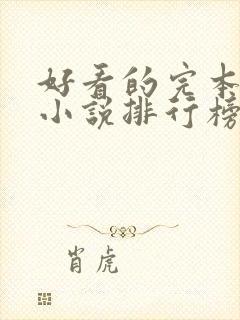 好看的完本
小说排行榜
肖虎